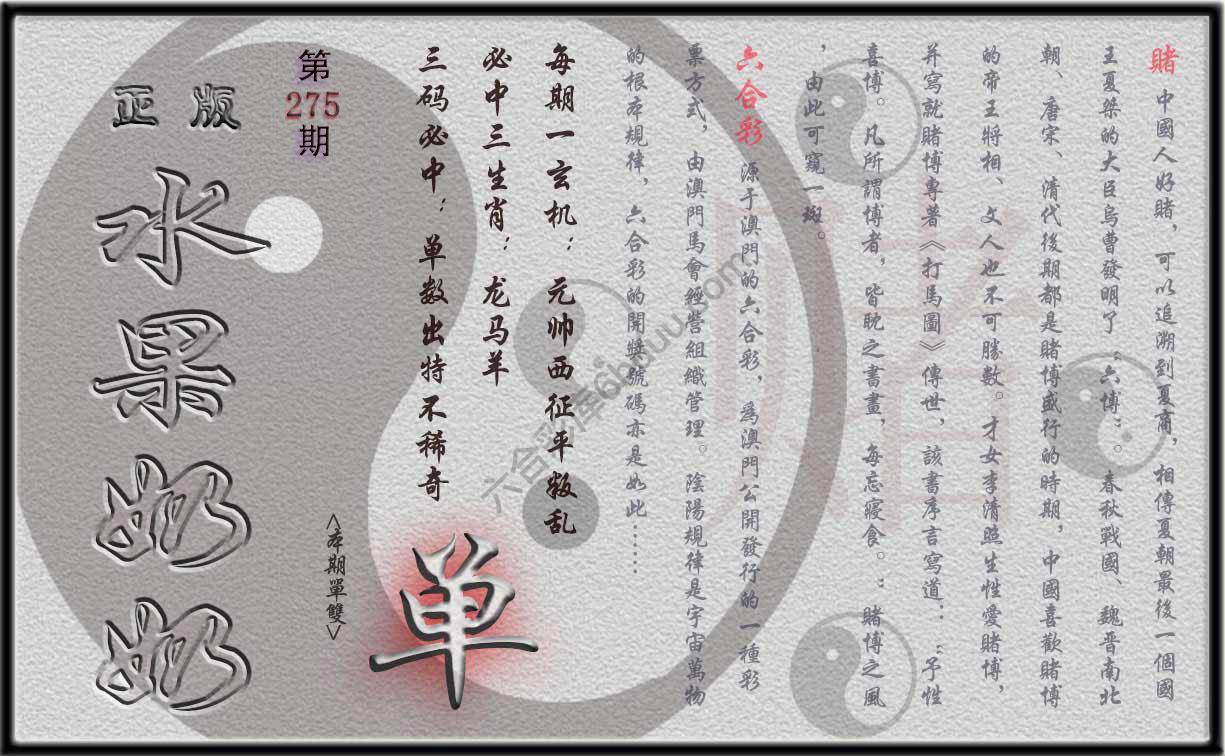 賭 中國人好賭，可以追溯到夏商，相傳夏朝最後一個國
王夏桀的大臣烏曹發明了“六博”。春秋戰國、魏晋南北
朝、唐宋、清代後期都是賭博盛行的時期，中國喜歡賭博
的帝王將相、文人也不可勝數。才女李清照生性愛賭博，
并寫就賭博專著《打馬圖》傳世，該書序言寫道：“予性
喜博。凡所謂博者，皆眈之書畫，每忘寢食。：賭博之風
，由此可窺一斑。
六合彩 源于澳門的六合彩，爲澳門公開發行的一種彩
票方式，由澳門馬會經營組織管理。陰陽規律是宇宙萬物
的根本規律，六合彩的開獎號碼亦是如此……
每期一玄机：元帅西征平叛乱
必中三生肖：龙马羊
三码必中：单数出特不稀奇
单
<本期單雙>
第
275
期
正版
水果奶奶
六合彩库6bduu.com
賭